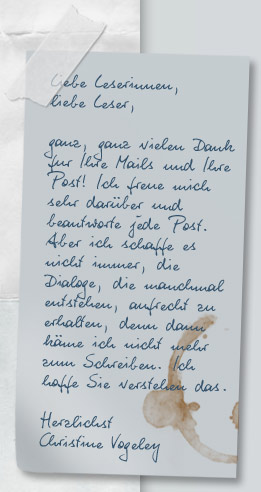 Liebe Leserinnen,
liebe Leser,
ganz, ganz vielen Dank
für Ihre Mails und Ihre
Post! Ich freue mich
sehr darüber und
beantworte jede Post.
Aber ich schaffe es
nicht immer, die
Dialoge, die manchmal
entstehen, aufrecht zu
erhalten, denn dann
käme ich nicht mehr
zum Schreiben. Ich
hoffe Sie verstehen das.
Herzlichst
Christine Vogeley